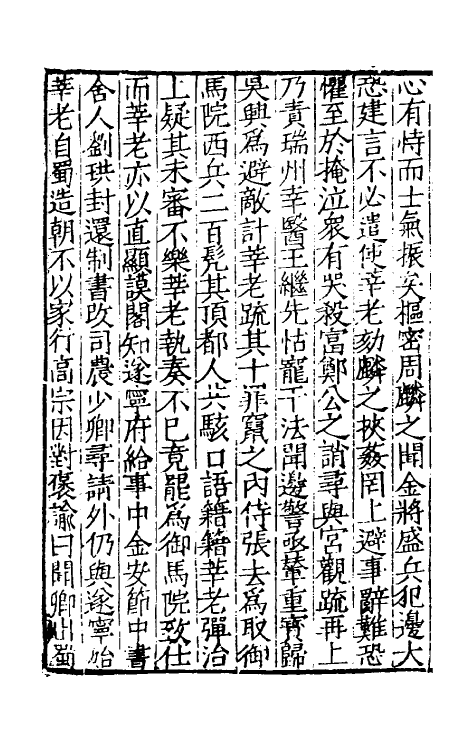 心有恃而士氣振矣樞密周麟之聞金將盛兵犯邊大
恐建言不必遣使莘老劾麟之挾姦罔上避事辭難恐
懼至於掩泣衆有哭殺富鄭公之誚尋與宮觀疏再上
乃責瑞州幸醫王繼先怙寵干法聞邊警亟輦重寳歸
吳興爲避敵計莘老疏其十罪竄之内侍張去爲取御
馬院西兵二百髠其頂都人共駭口語籍籍莘老彈治
上疑其未審不樂莘老執奏不已竟罷爲御馬院致仕
而莘老亦以直顯謨閣知遂寧府給事中金安節中書
舍人劉珙封還制書改司農少卿尋請外仍與遂寧始
莘老自蜀造朝不以家行高宗因對褒諭曰聞卿出蜀